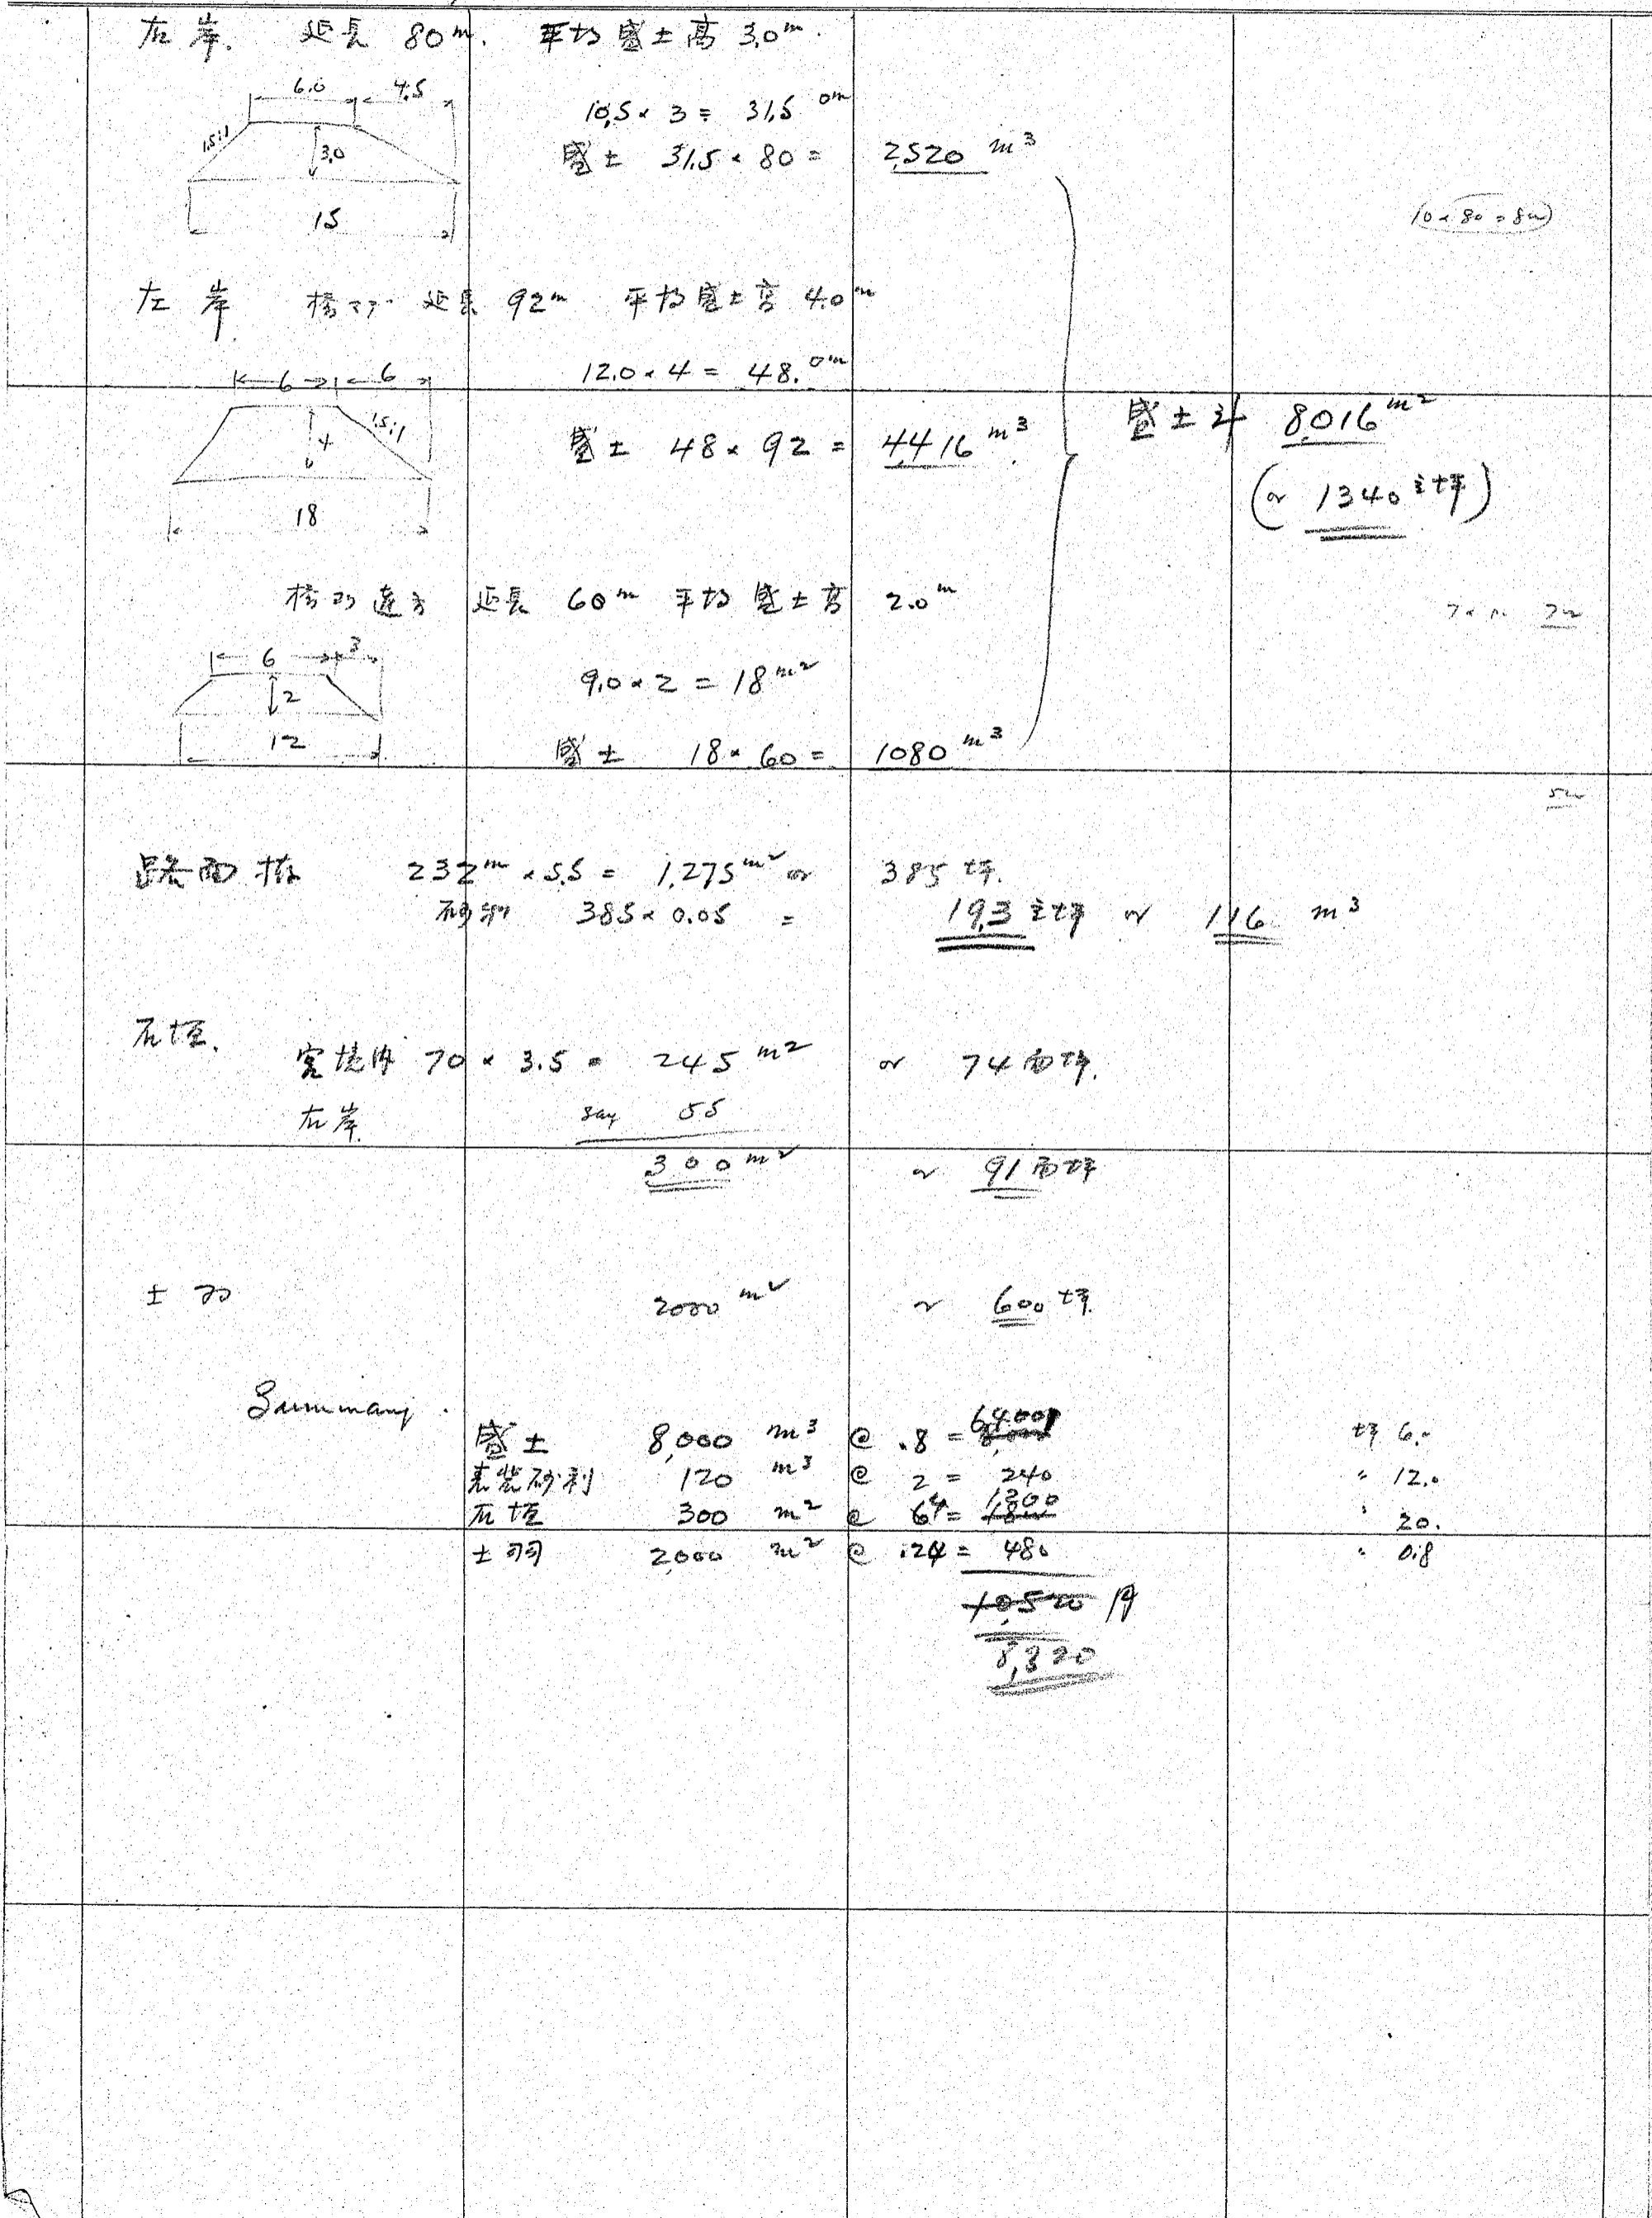 右岸. 延長 80m. 平均盛土高 3.0m.
6.0 4.5
1.5:1
3.0
15
10.5 × 3 = 31.5 □m
盛土 31.5 × 80 = 2,520 m3
(10 × 80 = 800)
左岸 延長 92m 平均盛土高 4.0m
6 6
1.5:1
4
18
12.0 × 4 = 48. □m
盛土 48 × 92 = 4,416 m3
盛土計 8,016 m2
(or 1340 立坪)
延長 60m 平均盛土高 2.0m
6 3
2
12
9.0 × 2 = 18 m2
盛土 18 × 60 = 1080 m3
路面 232m × 5.5 = 1,275 m2 or 385 坪.
砂利 385 × 0.05 = 19.3 立坪 or 116 m3
石垣.
70 × 3.5 = 245 m2 or 74 面坪.
右岸. say 55
300 m2 or 91 面坪
土羽 2000 m2 or 600 坪.
Summary.
盛土 8,000 m3 @ .8 = 6400 坪 6.-
砂利 120 m3 @ 2 = 240 " 12.0
石垣 300 m2 @ 4 = 1200 " 20.
土羽 2,000 m2 @ .24 = 480 " 0.8
10,520 円
8,320